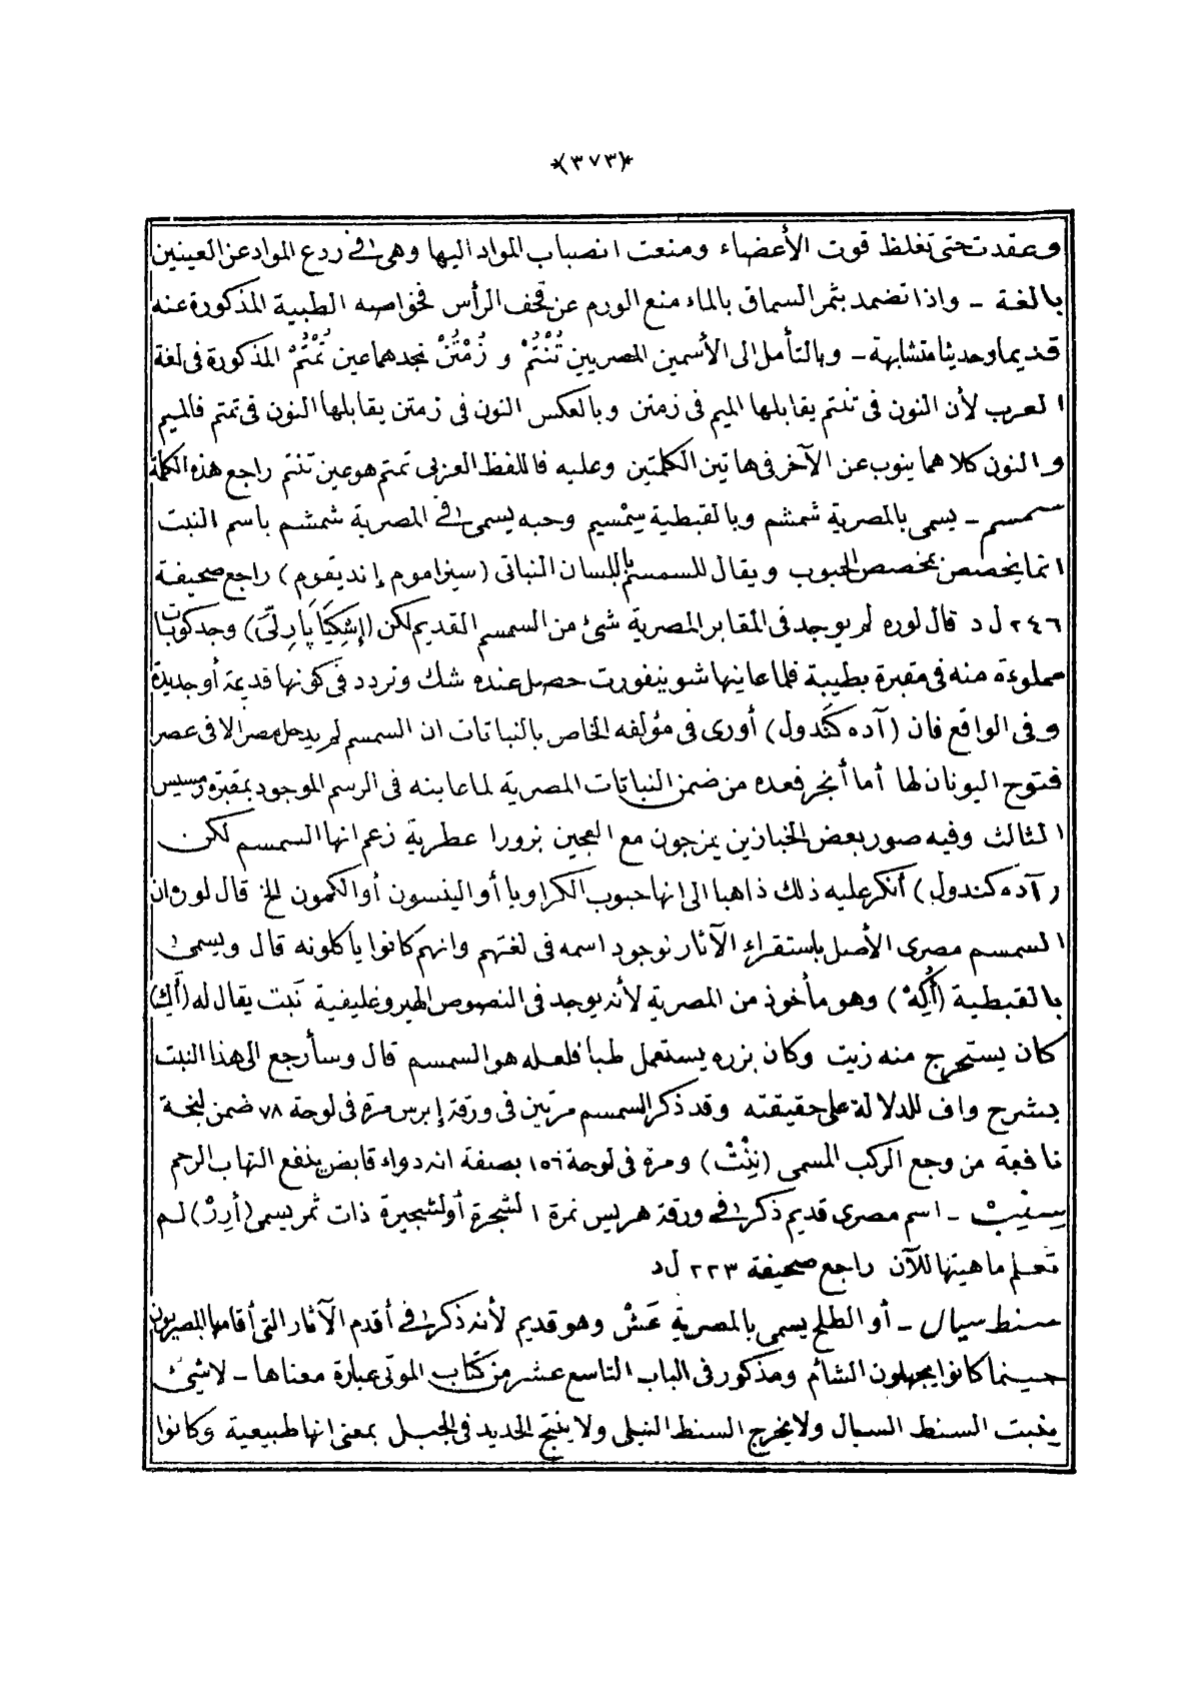 *(٣٧٣)*
وعقدت حتى تغلظ قوت الأعضاء ومنعت انصباب المواد اليها وهى فى ردع المواد عن العينين
بالغة - واذا تضمد بثمر السماق بالماء منع الورم عن قحف الرأس فخواصه الطبية المذكورة عنه
قديما وحديثا متشابهة - وبالتأمل الى الأسمين المصريين تُنْتُمْ و زُمْتُنْ نجدهما عين تُمْتُمْ المذكورة فى لغة
العرب لأن النون فى تنتم يقابلها الميم فى زمتن وبالعكس النون فى زمتن يقابلها النون فى تمتم فالميم
والنون كلاهما ينوب عن الآخر فى هاتين الكلمتين وعليه فاللفظ العربى تمتم هو عين تنتم راجع هذه الكلمة
سمسم - يسمى بالمصرية شمشم وبالقبطية سِمْسِيم وحبه يسمى فى المصرية شمشم باسم النبت
انما يخصص بمخصص الحبوب ويقال للسمسم باللسان النباتى (سيزاموم إنديقوم) راجع صحيفة
٢٤٦ ل د قال لوره لم يوجد فى المقابر المصرية شئ من السمسم القديم لكن (إشكِيَا پَارِلِّى) وجد كوبات
مملوءة منه فى مقبرة بطيبة فلما عاينها شوينفورت حصل عنده شك وتردد فى كونها قديمة أو جديدة
وفى الواقع فان (آده كَنْدول) أورى فى مؤلفه الخاص بالنباتات ان السمسم لم يدخل مصر الا فى عصر
فتوح اليونان لها أما أنجر فعده من ضمن النباتات المصرية لما عاينه فى الرسم الموجود بمقبرة رمسيس
الثالث وفيه صور بعض الخبازين يمزجون مع العجين بزورا عطرية زعم انها السمسم لكن
(آده كندول) أنكر عليه ذلك ذاهبا الى انها حبوب الكراويا أو الينسون أو الكمون الخ قال لوره ان
السمسم مصرى الأصل باستقراء الآثار لوجود اسمه فى لغتهم وانهم كانوا يأكلونه قال ويسمى
بالقبطية (أُكِهْ) وهو مأخوذ من المصرية لأنه يوجد فى النصوص الهيروغليفية نَبت يقال له (أَك)
كان يستخرج منه زيت وكان بزره يستعمل طبا فلعله هو السمسم قال وسأرجع الى هذا النبت
بشرح واف للدلالة على حقيقته وقد ذكر السمسم مرتين فى ورقة إبرس مرة فى لوحة ٧٨ ضمن لبخة
نافعة من وجع الركب المسمى (نِنْتْ) ومرة فى لوحة ١٥٦ بصفة انه دواء قابض ينفع التهاب الرحم
سِنِيبْ - اسم مصرى قديم ذكر فى ورقة هريس نمرة ١ لشجرة أو لشجيرة ذات ثمر يسمى (أدِرْ) لم
تعلم ماهيتها للآن راجع صحيفة ٢٢٣ ل د
سنط سيال - أو الطلح يسمى بالمصرية عَشْ وهو قديم لأنه ذكر فى أقدم الآثار التى أقامها المصريون
حينما كانوا يجهلون الشائم ومذكور فى الباب التاسع عشر من كتاب الموتى عبارة معناها - لا شئ
ينبت السنط السيال ولا يخرج السنط النيلى ولا ينتج الحديد فى الجبل بمعنى انها طبيعية وكانوا